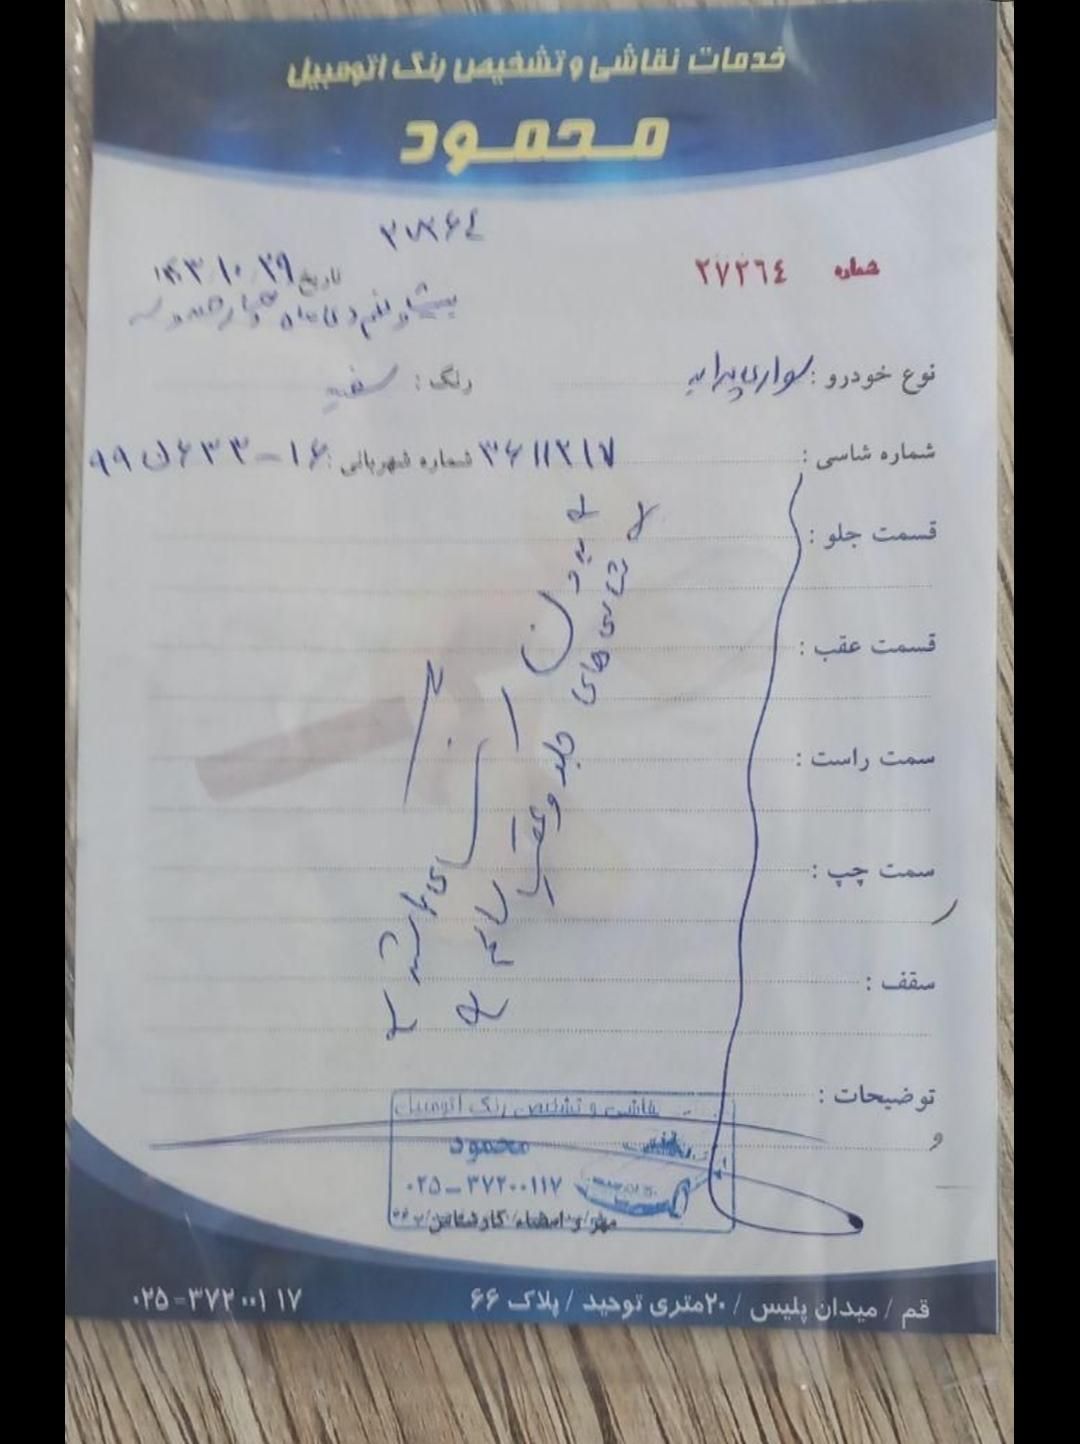 خدمات نقاشی و تشخیص رنگ اتومبیل
محمود
۲۷۲۶۴
شماره ۲۷۲٦٤
تاریخ ۱۴۰۳/۱۰/۲۹
نوع خودرو : سواری پراید رنگ : سفید
شماره شاسی : ۳۶۱۱۲۱۷ شماره شهربانی : ۹۹ ل ۶۳۳ - ۱۶
قسمت جلو :
قسمت عقب :
سمت راست :
سمت چپ :
سقف :
توضیحات :
و
شاسی های جلو و عقب سالم
بدن
می باشد
نقاشی و تشخیص رنگ اتومبیل
محمود
۰۲۵-۳۷۲۰۰۱۱۷
مهر و امضاء کارشناس
قم / میدان پلیس / ۲۰متری توحید / پلاک ۶۶ ۰۲۵-۳۷۲۰۰۱۱۷